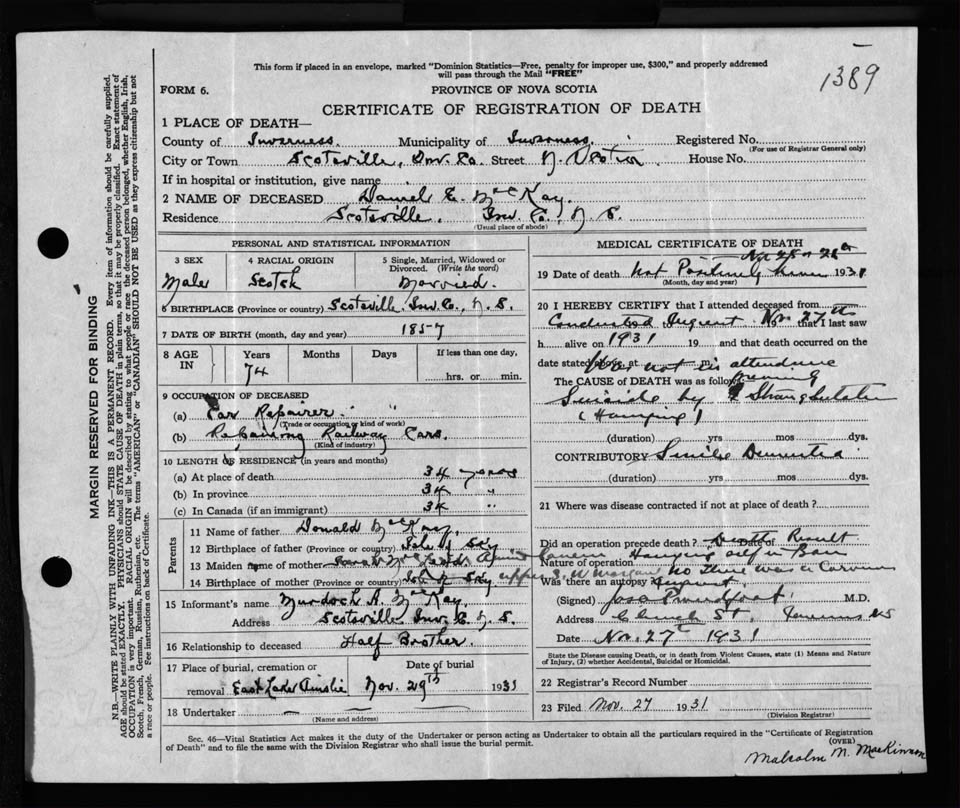 1389
This form if placed in an envelope, marked "Dominion Statistics—Free, penalty for improper use, $300," and properly addressed
will pass through the Mail "FREE"
FORM 6.
PROVINCE OF NOVA SCOTIA
CERTIFICATE OF REGISTRATION OF DEATH
1 PLACE OF DEATH—
County of Inverness. Municipality of Inverness. Registered No.
(For use of Registrar General only)
City or Town Scotsville, Inv. Co. Street N. Scotia House No.
If in hospital or institution, give name
2 NAME OF DECEASED Daniel E. McKay.
Residence Scotsville. Inv. Co., N. S.
(Usual place of abode)
PERSONAL AND STATISTICAL INFORMATION
3 SEX
Male
4 RACIAL ORIGIN
Scotch
5 Single, Married, Widowed or Divorced. (Write the word)
Married.
6 BIRTHPLACE (Province or country) Scotsville. Inv. Co., N. S.
7 DATE OF BIRTH (month, day and year) 1857
8 AGE IN
Years
74
Months
Days
If less than one day,
hrs. or min.
9 OCCUPATION OF DECEASED
(a) Car Repairer.
(Trade or occupation or kind of work)
(b) Repairing Railway Cars.
(Kind of industry)
10 LENGTH OF RESIDENCE (in years and months)
(a) At place of death 34 years
(b) In province 34 "
(c) In Canada (if an immigrant) 34 "
Parents
11 Name of father Donald McKay,
12 Birthplace of father (Province or country) Isle of Sky
13 Maiden name of mother
14 Birthplace of mother (Province or country)
15 Informant's name Murdoch A. McKay.
Address Scotsville, Inv. C. N. S.
16 Relationship to deceased Half Brother.
17 Place of burial, cremation or removal East Lake Ainslie
Date of burial
Nov. 29th 1931
18 Undertaker
(Name and address)
MEDICAL CERTIFICATE OF DEATH
19 Date of death Not Positively known 1931
(Month, day and year)
20 I HEREBY CERTIFY that I attended deceased from
Conducted Inquest Nov 27th that I last saw
h alive on 1931 19 and that death occurred on the
date stated above, at m. was not in attendance
The CAUSE of DEATH was as follows
Suicide by Strangulation
(Hanging)
(duration) yrs mos dys.
CONTRIBUTORY Senile Dementia
(duration) yrs mos dys.
21 Where was disease contracted if not at place of death?
Did an operation precede death? Date of
Nature of operation Hanging self in Barn
Was there an autopsy no there was a Coroners
inquest
(Signed) M.D.
Address Church St. Inverness NS
Date Nov. 27th 1931
State the Disease causing Death, or in death from Violent Causes, state (1) Means and Nature of Injury, (2) whether Accidental, Suicidal or Homicidal.
22 Registrar's Record Number
23 Filed Nov. 27 1931
(Division Registrar)
Sec. 46—Vital Statistics Act makes it the duty of the Undertaker or person acting as Undertaker to obtain all the particulars required in the "Certificate of Registration
of Death" and to file the same with the Division Registrar who shall issue the burial permit.
(OVER)
Malcolm M. MacKinnon
MARGIN RESERVED FOR BINDING
N.B.—WRITE PLAINLY WITH UNFADING INK—THIS IS A PERMANENT RECORD. Every item of information should be carefully supplied.
AGE should be stated EXACTLY. PHYSICIANS should STATE CAUSE OF DEATH in plain terms, so that it may be properly classified. Exact statement of
OCCUPATION is very important. RACIAL ORIGIN will be described by stating to what people or race the deceased person belonged, whether English, Irish,
Scotch, French, German, Russian, Ruthenian, etc. The terms "AMERICAN" or "CANADIAN" SHOULD NOT BE USED as they express citizenship but not
a race or people. Fee instructions on back of Certificate.